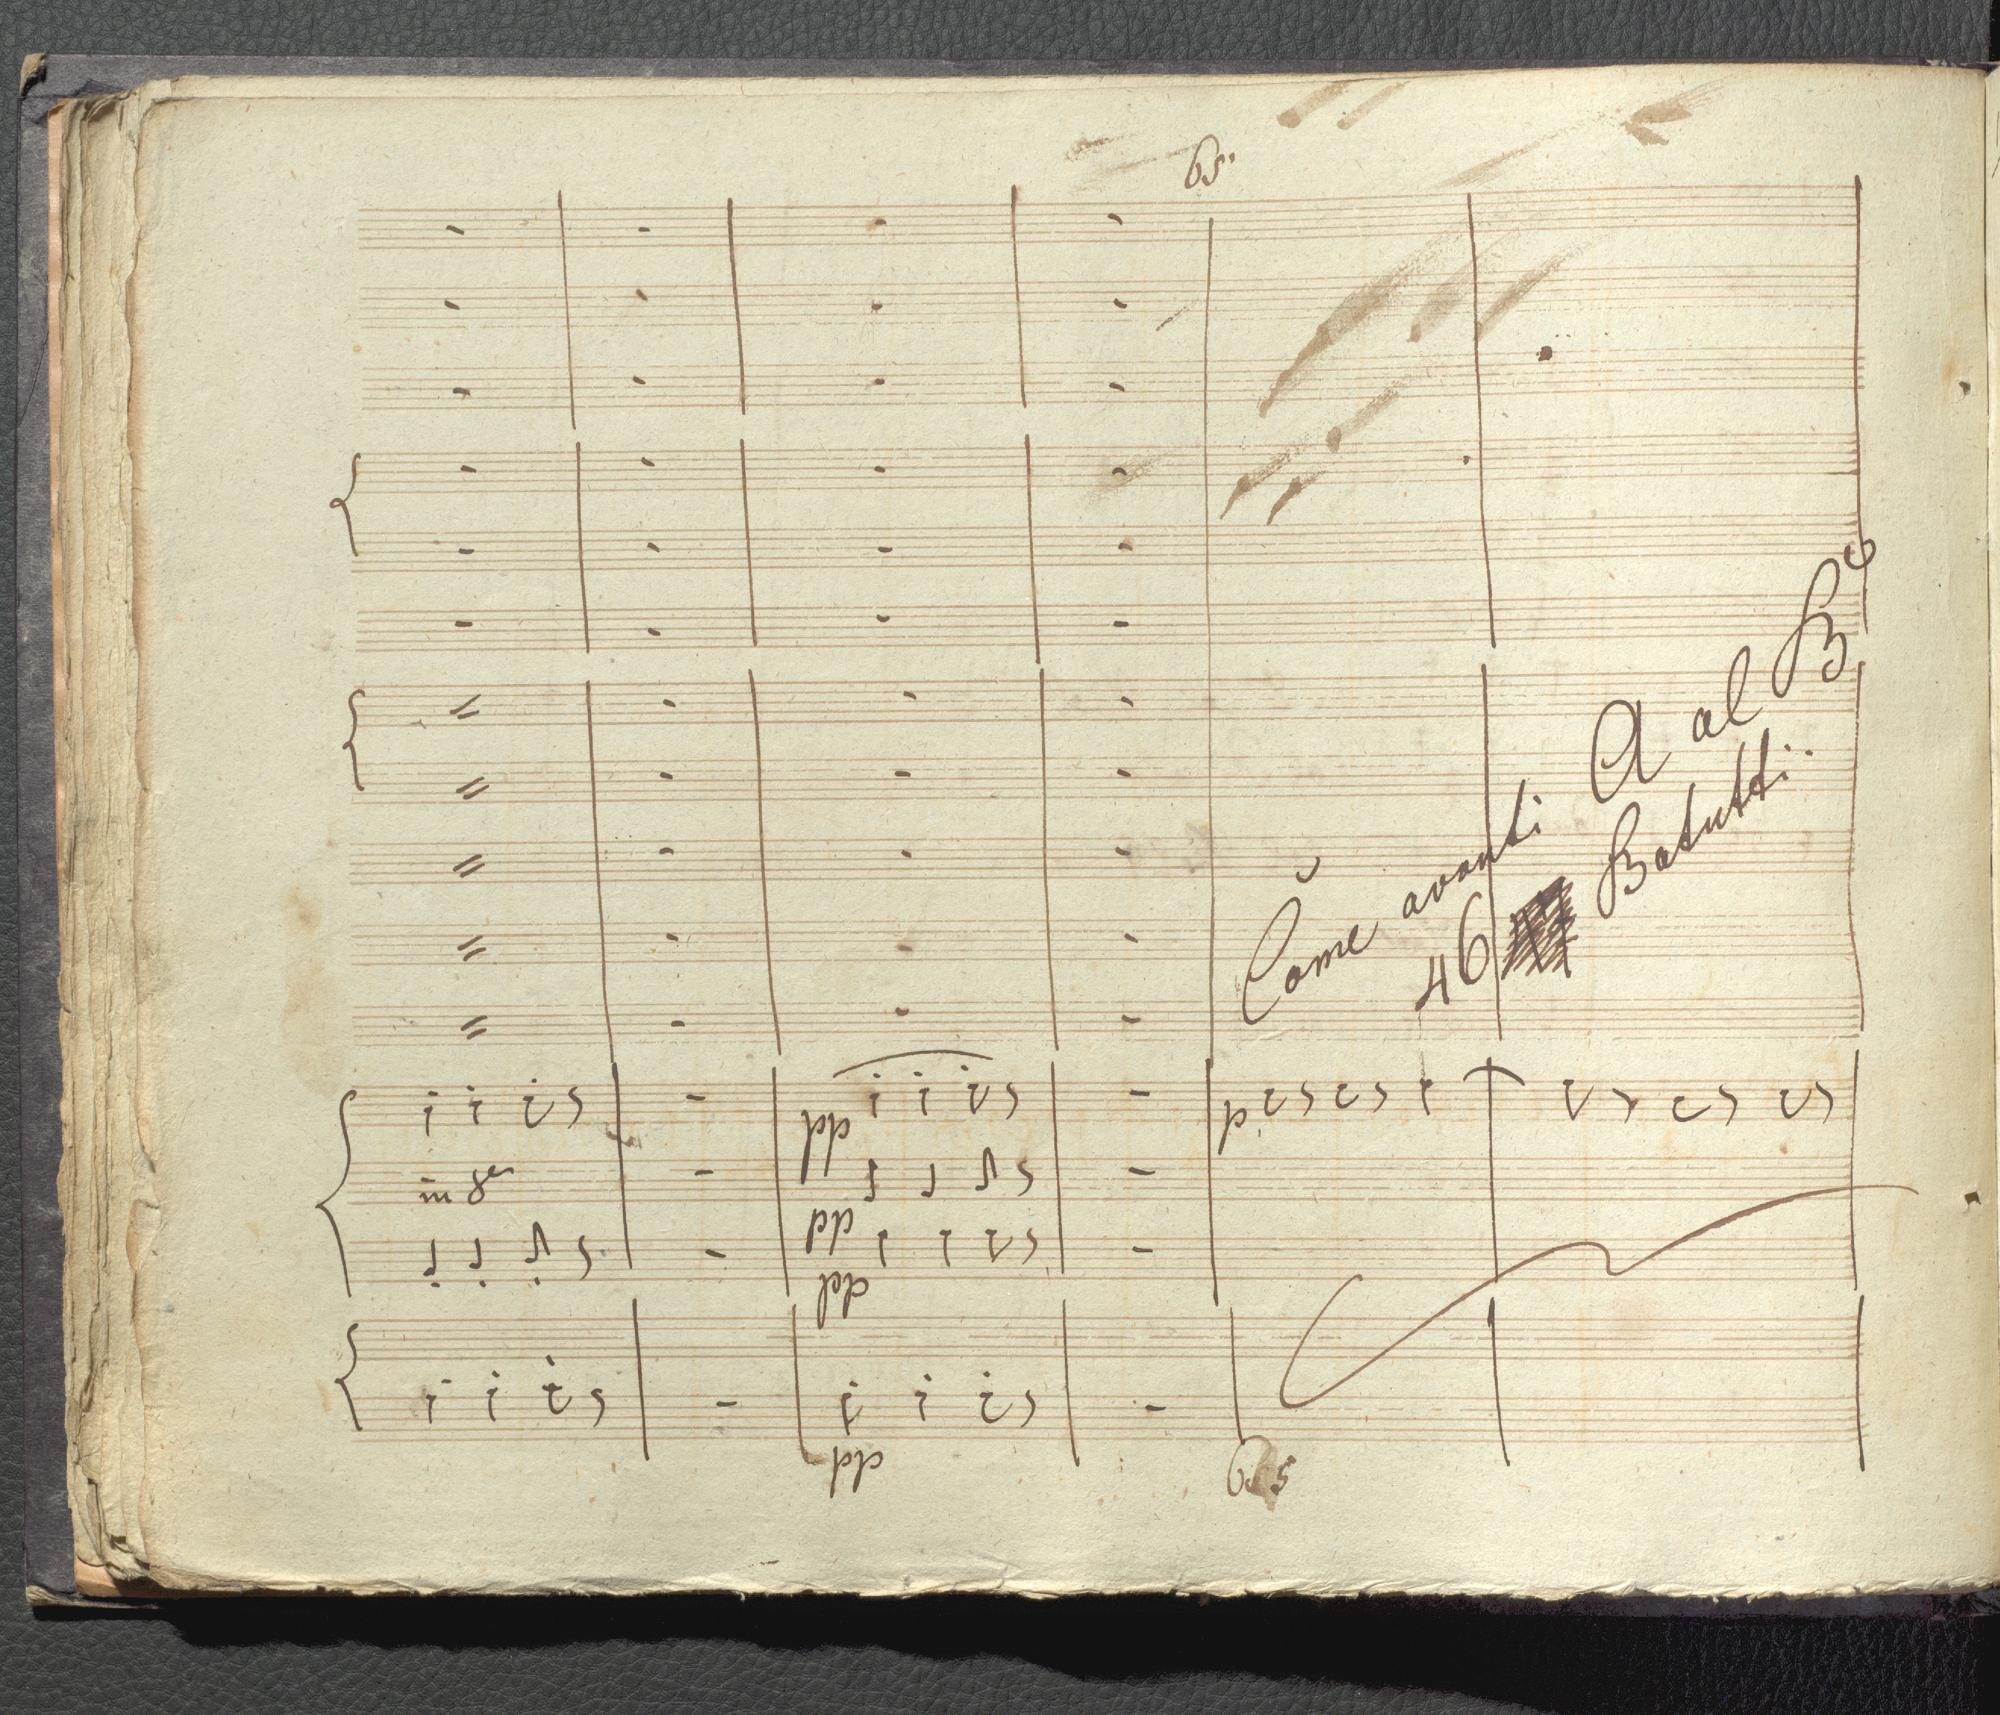 65
Come avanti A al B
46 Batutti
in 8va
pp
p
pp
pp
pp
65